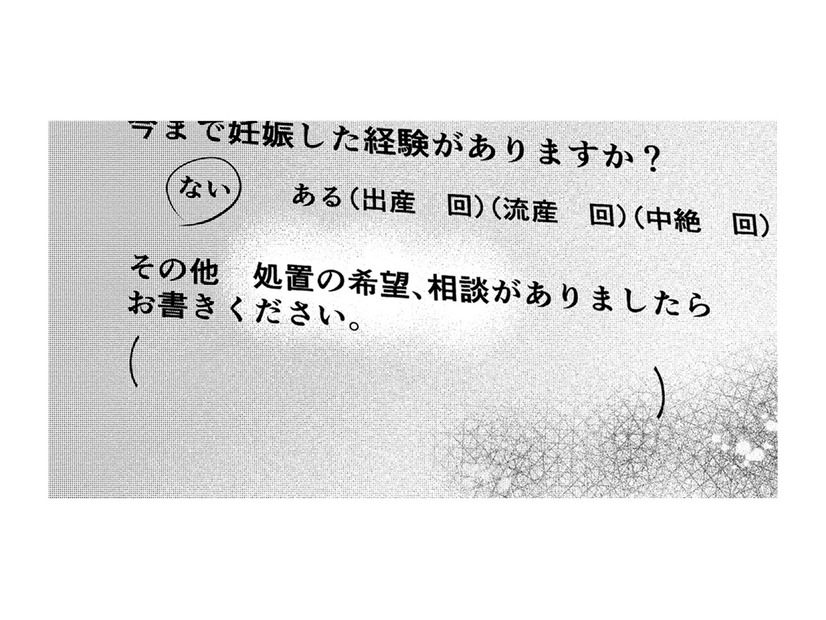 今まで妊娠した経験がありますか？
ない　ある（出産　回）（流産　回）（中絶　回）
その他　処置の希望、相談がありましたら
お書きください。
（　　　）